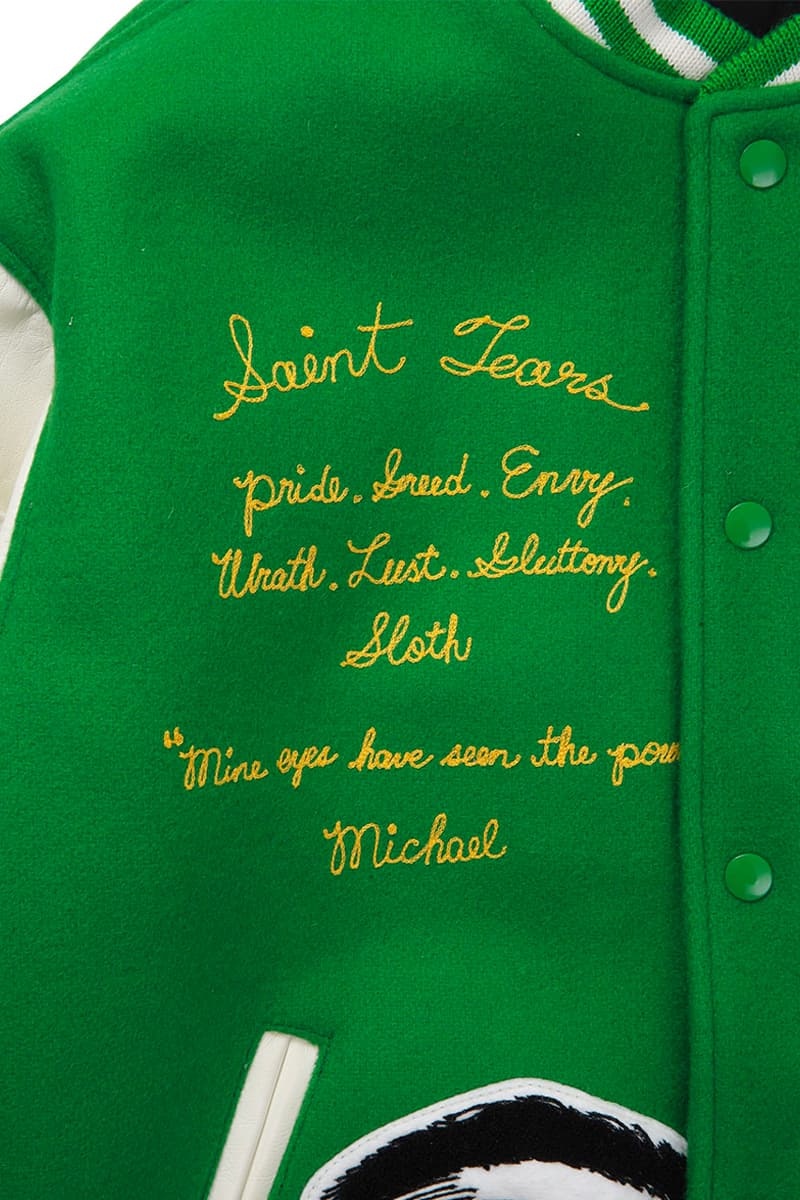 Saint Tears
Pride. Greed. Envy.
Wrath. Lust. Gluttony.
Sloth
"Mine eyes have seen the
Michael